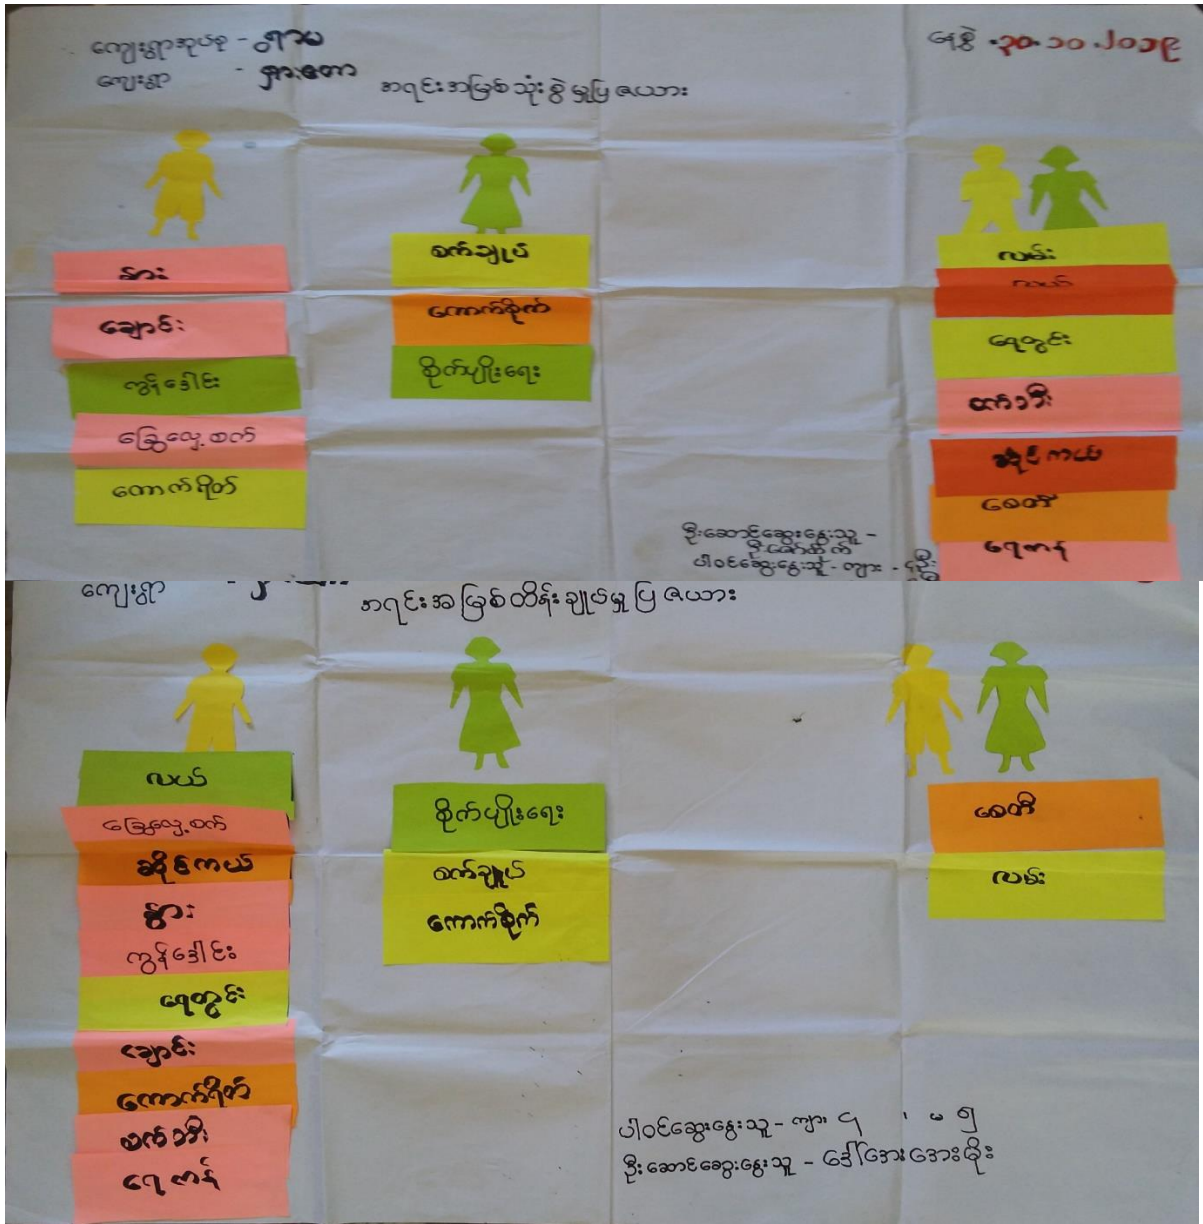 ကျေးရွာအုပ်စု - ရွာမ
နေ့စွဲ - ၃၀.၁၀.၂၀၁၉
ကျေးရွာ - ရှားတော
အရင်းအမြစ်သုံးစွဲမှုပြဇယား
နွား
ချောင်း
ကျွန်းခေါင်း
ခြွေလှေ့စက်
ကောက်ရိတ်
စက်ချုပ်
ကောက်စိုက်
စိုက်ပျိုးရေး
လမ်း
လယ်
ရေတွင်း
စက်ဘီး
ဆိုင်ကယ်
စေတီ
ရေကန်
ဦးဆောင်ဆွေးနွေးသူ -
ပါဝင်ဆွေးနွေးသူ - ကျား - ၄ဦး
ကျေးရွာ
အရင်းအမြစ်ထိန်းချုပ်မှုပြဇယား
လယ်
ခြွေလှေ့စက်
ဆိုင်ကယ်
နွား
ကျွန်းခေါင်း
ရေတွင်း
ချောင်း
ကောက်ရိတ်
စက်ဘီး
ရေကန်
စိုက်ပျိုးရေး
စက်ချုပ်
ကောက်စိုက်
စေတီ
လမ်း
ပါဝင်ဆွေးနွေးသူ - ကျား ၄ ၊ မ ၅
ဦးဆောင်ဆွေးနွေးသူ - ဒေါ်အေးအေးမိုး